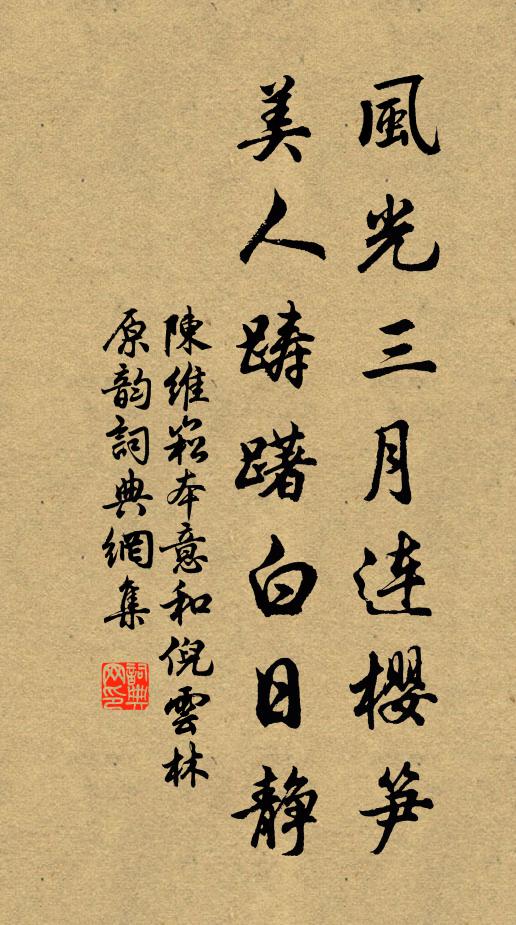 風光三月連櫻笋
美人躊躇白日静
陳維崧本意和倪雲林
原韵詞典網集
詞典网印